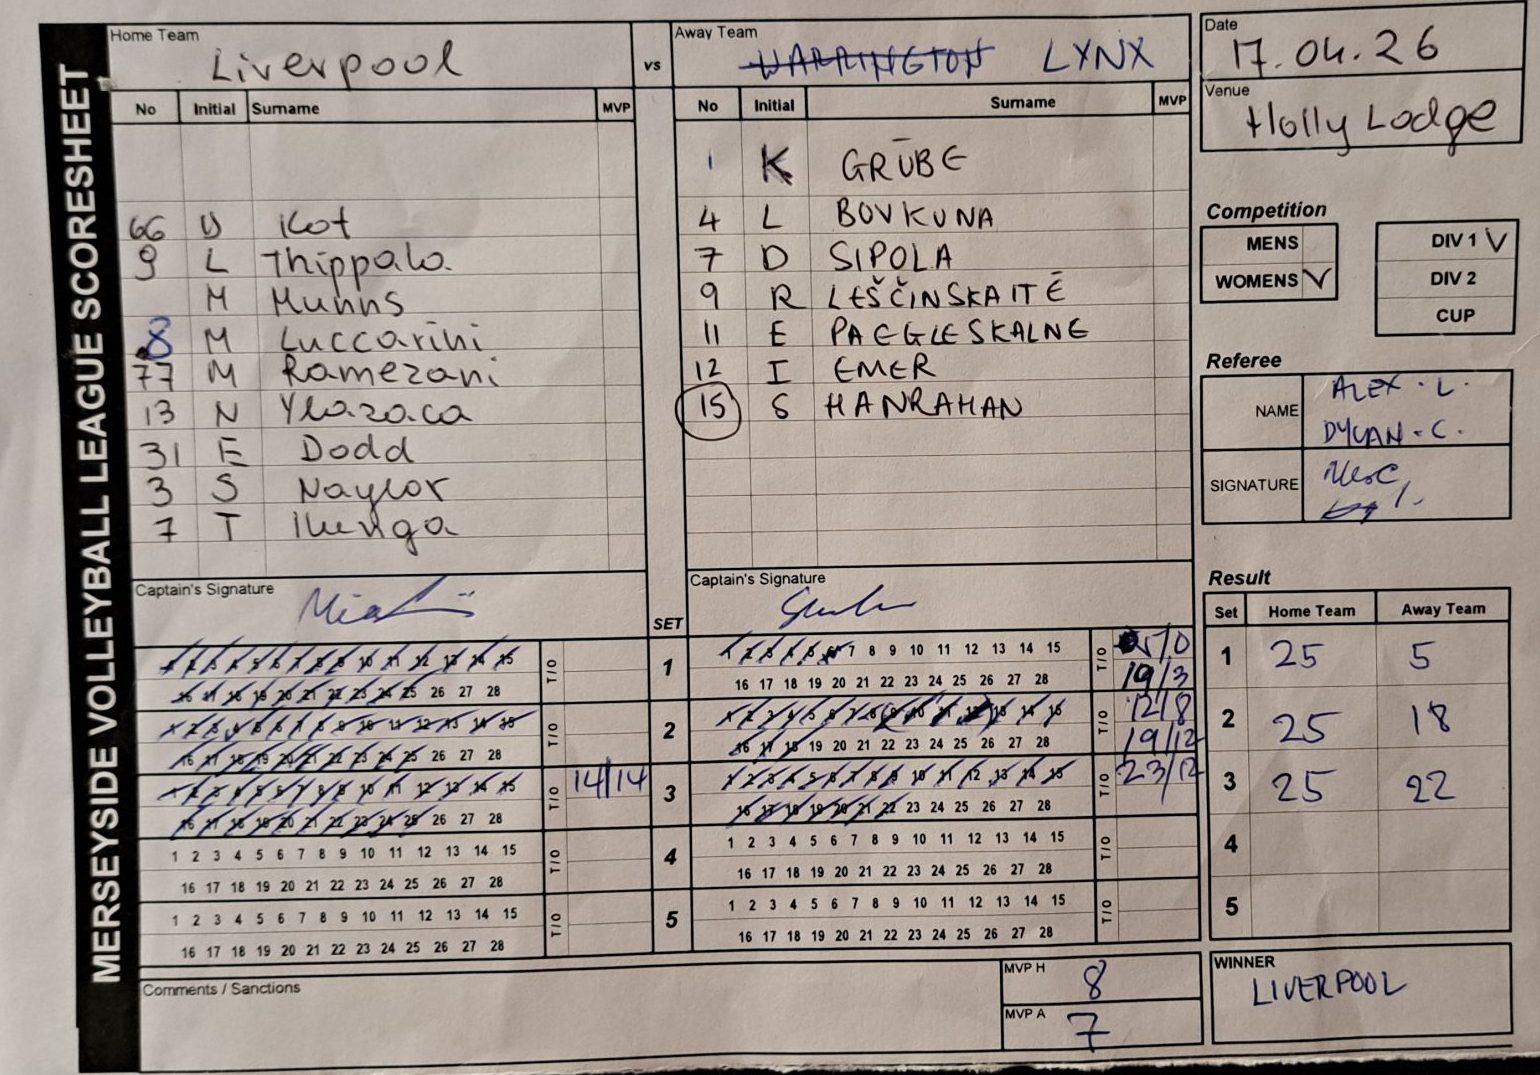 MERSEYSIDE VOLLEYBALL LEAGUE SCORESHEET
Home Team
Liverpool
vs
Away Team
WARRINGTON LYNX
Date
17.04.26
Venue
Holly Lodge
No Initial Surname MVP
No Initial Surname MVP
66 Kot
9 L Thippala
M Munns
8 M Luccarini
77 M Ramezani
13 N Ylazaca
31 E Dodd
3 S Naylor
7 T Ilunga
1 K GRŪBE
4 L BOVKUNA
7 D SIPOLA
9 R LEŠČINSKAITĖ
11 E PAEGLESKALNE
12 I EMER
15 S HANRAHAN
Competition
MENS
WOMENS V
DIV 1 V
DIV 2
CUP
Referee
NAME
ALEX . L .
DYLAN . C .
SIGNATURE
Captain's Signature
SET
Captain's Signature
1 2 3 4 5 6 7 8 9 10 11 12 13 14 15 T/O
16 17 18 19 20 21 22 23 24 25 26 27 28
1
1 2 3 4 5 6 7 8 9 10 11 12 13 14 15 T/O 5/0
16 17 18 19 20 21 22 23 24 25 26 27 28 19/3
1 2 3 4 5 6 7 8 9 10 11 12 13 14 15 T/O
16 17 18 19 20 21 22 23 24 25 26 27 28
2
1 2 3 4 5 6 7 8 9 10 11 12 13 14 15 T/O 12/8
16 17 18 19 20 21 22 23 24 25 26 27 28 19/12
1 2 3 4 5 6 7 8 9 10 11 12 13 14 15 T/O 14/14
16 17 18 19 20 21 22 23 24 25 26 27 28
3
1 2 3 4 5 6 7 8 9 10 11 12 13 14 15 T/O
16 17 18 19 20 21 22 23 24 25 26 27 28
1 2 3 4 5 6 7 8 9 10 11 12 13 14 15 T/O
16 17 18 19 20 21 22 23 24 25 26 27 28
4
1 2 3 4 5 6 7 8 9 10 11 12 13 14 15 T/O
16 17 18 19 20 21 22 23 24 25 26 27 28
1 2 3 4 5 6 7 8 9 10 11 12 13 14 15 T/O
16 17 18 19 20 21 22 23 24 25 26 27 28
5
1 2 3 4 5 6 7 8 9 10 11 12 13 14 15 T/O
16 17 18 19 20 21 22 23 24 25 26 27 28
Result
Set Home Team Away Team
1 25 5
2 25 18
3 25 22
4
5
Comments / Sanctions
MVP H 8
MVP A 7
WINNER
LIVERPOOL